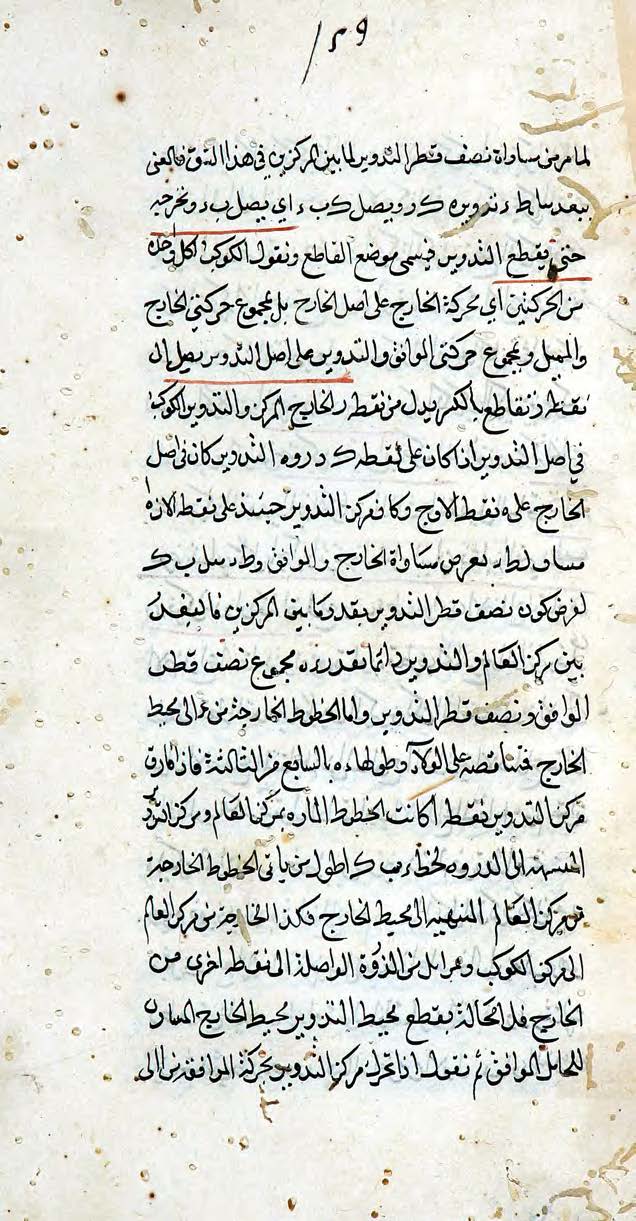 ١٢٩
لما مر من مساواة نصف قطر التدوير لما بين المركزين في هذا الشق فالعنى
ببعد ساط ء تدويره ك ر ويصل ك ب ء اي يصل ب ء ونخرجه
حتى يقطع التدوير فيسمى موضع القاطع ونقول الكوكب لكل واحدة
من الحركتين اي بحركة الخارج على اصل الخارج بل بمجموع حركتي الخارج
والمميل وبمجموع حركتي الموافق والتدوير على اصل التدوير يصل الى
نقطة ر تقاطع بالكسر بدل من نقطه ر الخارج المركز والتدوير الكوكب
في اصل التدوير اذا كان على نقطه ك ذروه التدوير كان في اصل
الخارج على ه نقطة الاوج وكا مركز التدوير حينئذ على نقطه
مساو لطا لفرض مساواة الخارج والموافق وط ء مثل ب ك
لفرض كون نصف قطر التدوير بقدر ما بين المركزين فالبعد
بين مركز العالم والتدوير دائما بقدر مجموع نصف قطر
الموافق ونصف قطر التدوير واما الخطوط الخارجة من ء الى محيط
الخارج فمتناقصة على الولاء وطولها ء ه بالسابع من الثالثة فاذا فارق
مركز التدوير نقطه ا كانت الخطوط الماره بمركز العالم ومركز التدوير
المنتهيه الى الذروه كخط ء ب ك اطول من باقى الخطوط الخارجة
من مركز العالم المنتهيه الى محيط الخارج فكذا الخارجة من مركز العالم
الى مركز الكوكب وهو زايل من الذروة الواصلة الى نقطة اخرى من
الخارج فلا محالة يقطع محيط التدوير محيط الخارج المساوى
للحامل الموافق ثم نقول اذا تحرك مركز التدوير بحركة الموافق من ا الى